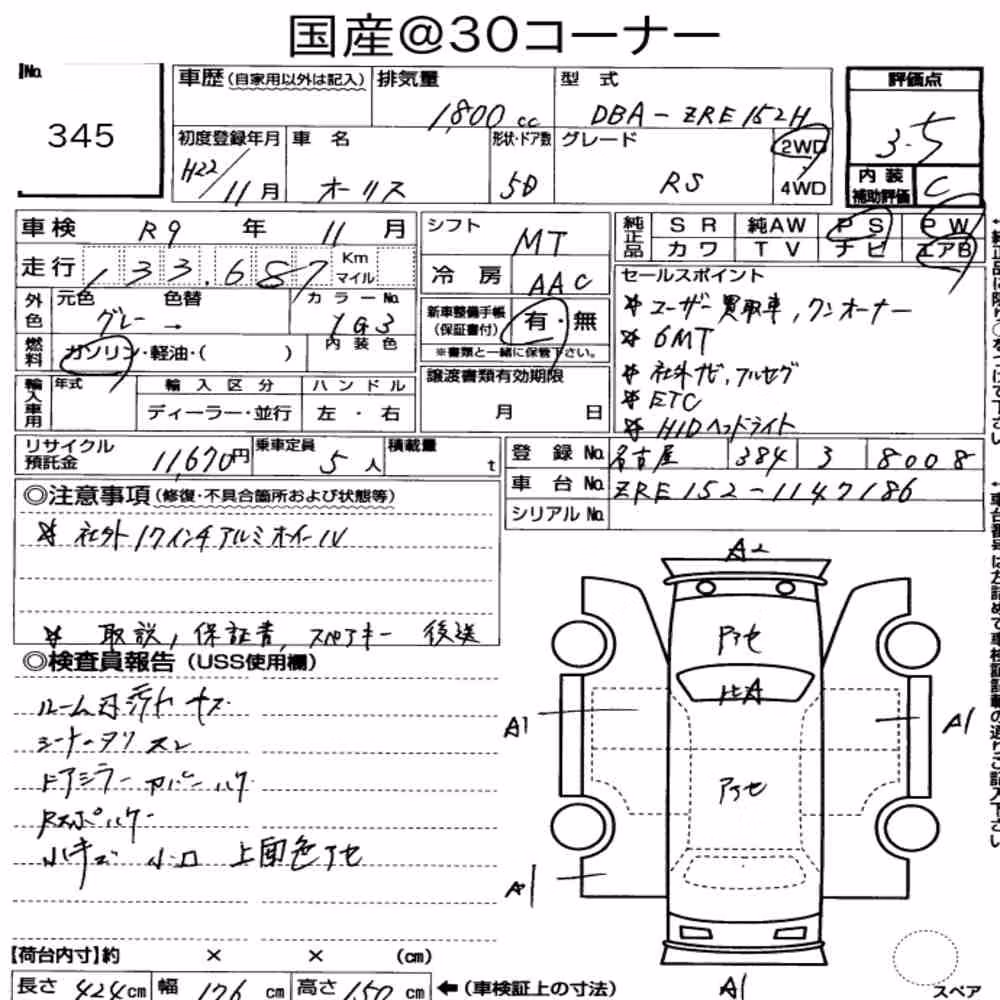 国産@30コーナー
No. 345
車歴(自家用以外は記入) 排気量 1,800 cc 型式 DBA-ZRE152H 評価点 3.5
初度登録年月 H22/11月 車名 オーリス 形状・ドア数 5D グレード RS 2WD・4WD 内装補助評価 C
車検 R9年 11月 シフト MT 純正品 SR 純AW PS PW
走行 133,687 Km マイル 冷房 AAC カワ TV ナビ エアB
外色 元色 グレー → 色替 カラーNo. 1G3 新車整備手帳(保証書付) 有・無
燃料 ガソリン・軽油・( ) 内装色 ※書類と一緒に保管下さい。
輸入車用 年式 輸入区分 ディーラー・並行 ハンドル 左・右 譲渡書類有効期限 月 日
セールスポイント
* ユーザー買取車, ワンオーナー
* 6MT
* 社外ナビ, フルセグ
* ETC
* HIDヘッドライト
リサイクル預託金 11,670円 乗車定員 5人 積載量 t
登録No. 名古屋 384 ヨ 8008
車台No. ZRE152-1147186
シリアルNo.
◎注意事項(修復・不具合箇所および状態等)
* 社外17インチアルミホイール
* 取説, 保証書, スペアキー 後送
◎検査員報告(USS使用欄)
シートヘタリ スレ
小キズ 小凹 上面色アセ
A2
アセ
A1
A1
アセ
A1
A1
スペア
【荷台内寸】約 × × (cm)
長さ 424cm 幅 176cm 高さ 150cm ←(車検証上の寸法)